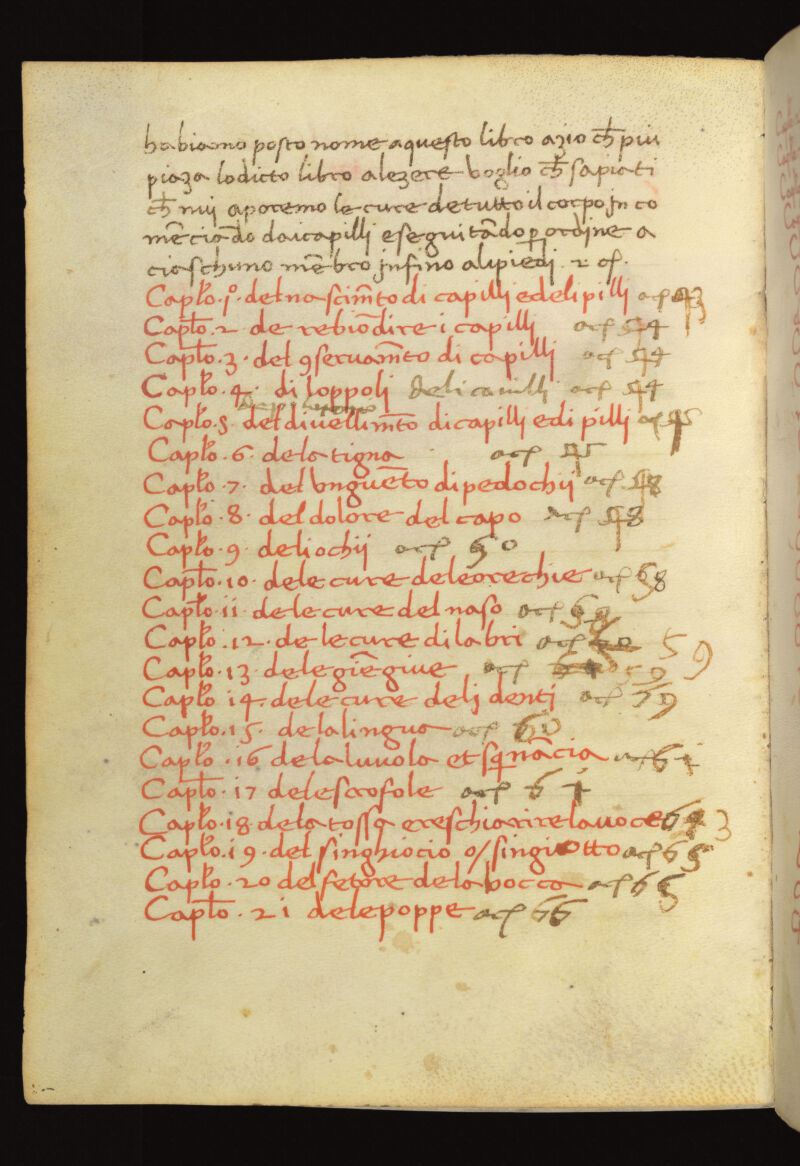 habiamo posto nome a questo libro azio ch̄ piu
piaza lo dicto libro a lezere voglio ch̄ sapiati
ch̄ nuj aporemo le cure de tutto il corpo jn co
mēciādo da i capilli e seguitādo ꝑ ordine a
ciaschuno mēbro jnfino a li piedi . 2 cꝭ.
Capłо. jº. del nascim̄to di capilli e deli pilli a cꝭ 43
Capło. 2 de rebiōdire i capilli a cꝭ 44
Capło. 3. del ꝯseruam̄to di capilli a cꝭ 44
Capło. 4. di loppoli deli cauilli a cꝭ 44
Capło. 5 del diuellim̄to di capilli e di pilli a cꝭ 45
Capło. 6. de la tigna a cꝭ 45
Capło. 7. del vnguēto di pedochij a cꝭ 48
Capło. 8. del dolore del capo a cꝭ 48
Capło. 9 de li ochij a cꝭ 50
Capło. 10. de le cure de le orechie a cꝭ 58
Capło. 11. de le cure del naso a cꝭ 59
Capło. 12. de le cure di labri a cꝭ 59
Capło. 13. de le giēgiue a cꝭ 59
Capło 14. de le cure de lj dentj a cꝭ 59
Capło. 15. de la lingua a cꝭ 60
Capło. 16 de la luuola et sq̄nācia a cꝭ 61
Capło. 17 de le scrofole a cꝭ 61
Capło. 18. de la tossa e reschiarire la uoce 63
Capło. 19. del singhiocio o/ singiotto a cꝭ 65
Capło. 20 del fetore de la bocca a cꝭ 65
Capło. 21 de le poppe a cꝭ 66